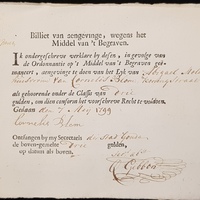 Billiet van aengevinge, wegens het
Middel van 't Begraven.
Ik ondergeschreve verklare by desen, in gevolge van
de Ordonnantie op 't Middel van 't Begraven geë-
maneert, aengevinge te doen van het Lyk van Abigael
van Cornelis Blom
als gehoorende onder de Classis van drie
gulden, om dien conform het voorschreve Recht te voldoen.
Gedaen den 7 May 1799
Cornelis Blom
Ontfangen by my Secretaris
de boven-gemelte drie gulden,
op datum als boven.